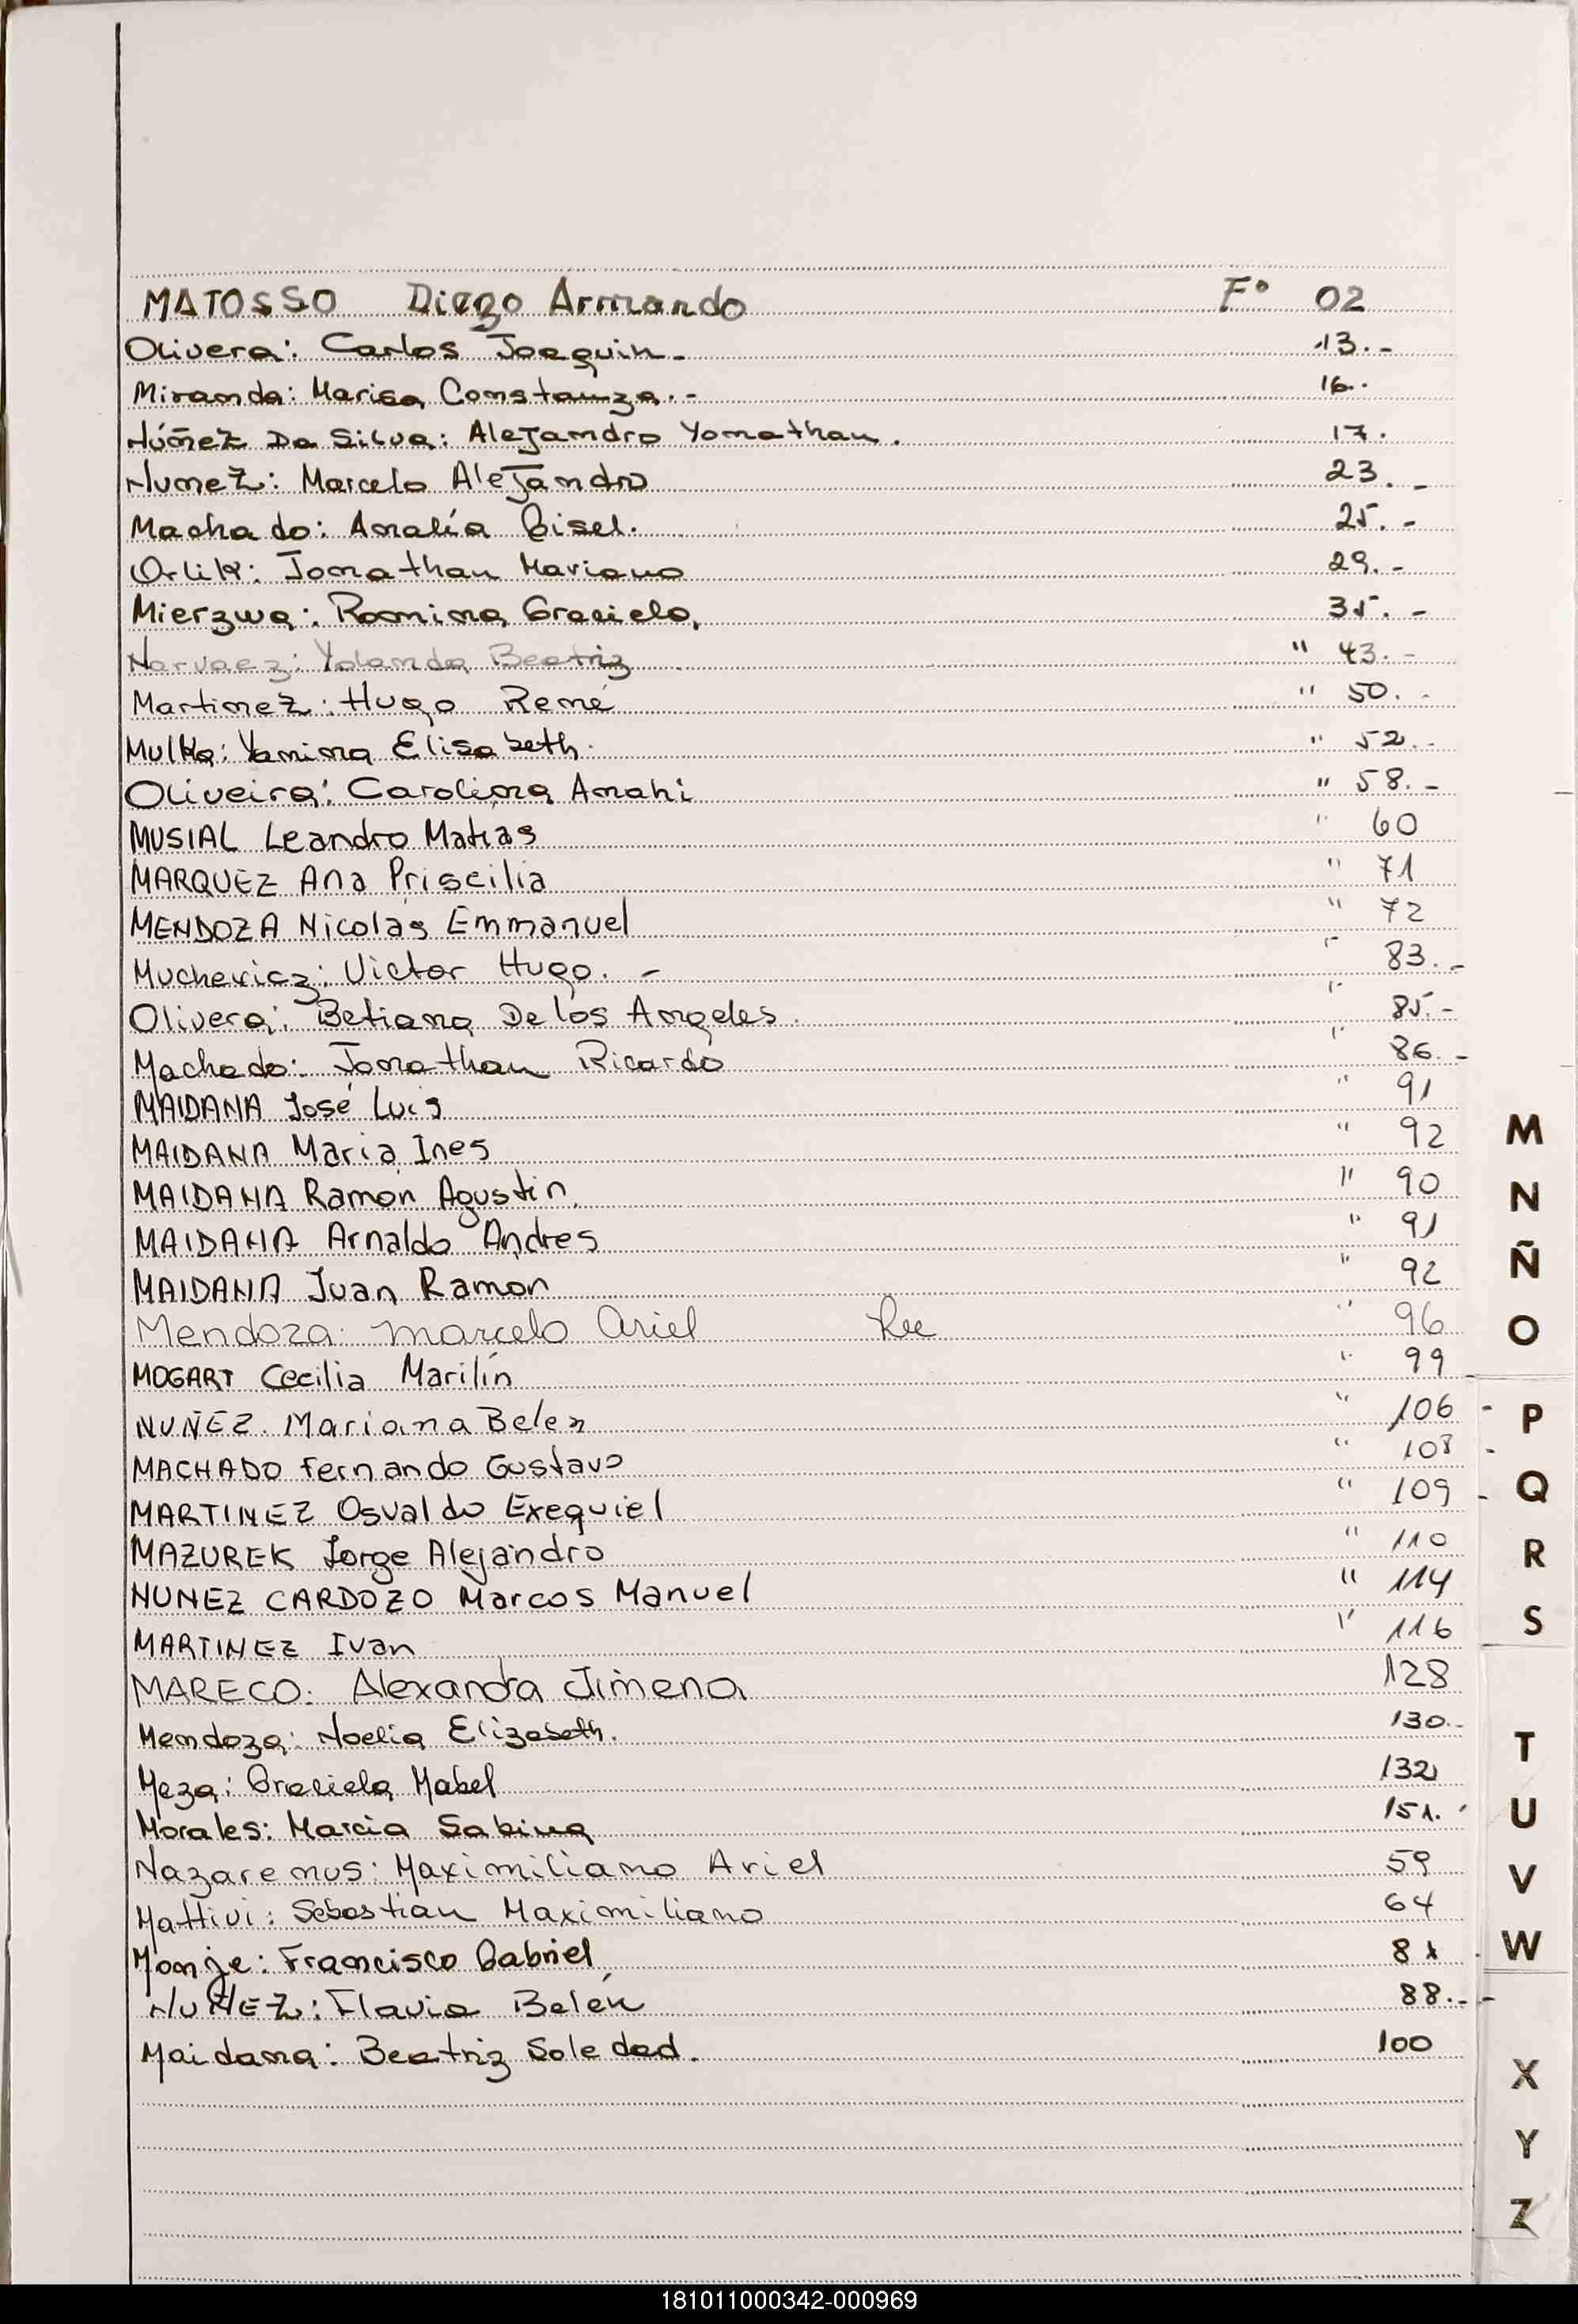 MATOSSO Diego Armando Fº 02
Olivera: Carlos Joaquin.- 13.-
Miranda: Marisa Constanza.- 16.
Núñez Da Silva: Alejandro Yonathan. 17.
Nunez: Marcelo Alejandro 23.-
Machado: Analía Gisel. 25.-
Orlik: Jonathan Mariano 29.-
Mierzwa: Romina Graciela, 35.-
Narvaez: Yolanda Beatriz " 43.-
Martinez: Hugo René " 50.-
Mulka: Yanina Elisabeth. " 52.-
Oliveira: Carolina Anahi " 58.-
MUSIAL Leandro Matias " 60
MARQUEZ Ana Priscilia " 71
MENDOZA Nicolás Emmanuel " 72
Muchewicz: Victor Hugo.- " 83.-
Olivera: Betiana De los Angeles. " 85.-
Machado: Jonathan Ricardo " 86.-
MAIDANA José Luis " 91
MAIDANA Maria Ines " 92
MAIDANA Ramón Agustin. " 90
MAIDANA Arnaldo Andres " 91
MAIDANA Juan Ramon " 92
Mendoza: Marcelo Ariel " 96
MOGART Cecilia Marilín " 99
NUÑEZ. Mariana Belen " 106 -
MACHADO Fernando Gustavo " 108 -
MARTINEZ Osvaldo Exequiel " 109 -
MAZUREK Jorge Alejandro " 110
NUNEZ CARDOZO Marcos Manuel " 114
MARTINEZ Ivan " 116
MARECO: Alexandra Jimena 128
Mendoza: Noelia Elizabeth. 130.-
Meza: Graciela Mabel 132
Morales: Marcia Sabina 151.
Nazarenus: Maximiliano Ariel 59
Mattivi: Sebastian Maximiliano 64
Monje: Francisco Gabriel 81
NUÑEZ: Flavia Belén 88.-
Maidana: Beatriz Soledad. 100
M
N
Ñ
O
P
Q
R
S
T
U
V
W
X
Y
Z
181011000342-000969